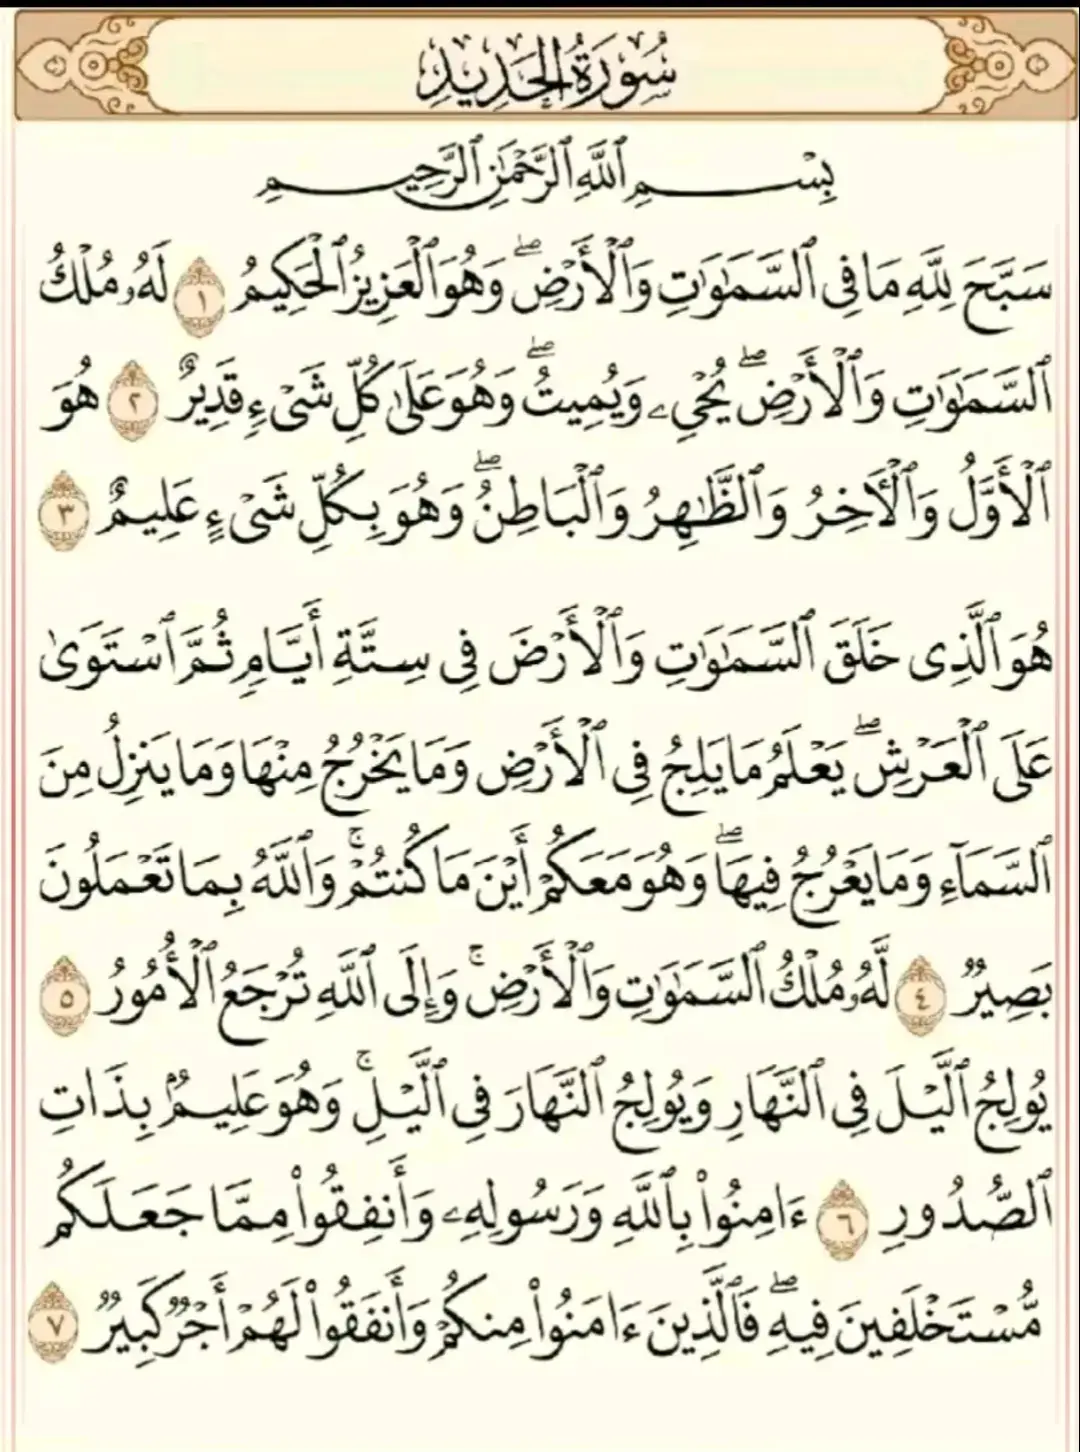 سُورَةُ الحَدِيدِ
بِسْمِ ٱللَّهِ ٱلرَّحْمَٰنِ ٱلرَّحِيمِ
سَبَّحَ لِلَّهِ مَا فِى ٱلسَّمَٰوَٰتِ وَٱلْأَرْضِ ۖ وَهُوَ ٱلْعَزِيزُ ٱلْحَكِيمُ ١ لَهُۥ مُلْكُ
ٱلسَّمَٰوَٰتِ وَٱلْأَرْضِ ۖ يُحْىِۦ وَيُمِيتُ ۖ وَهُوَ عَلَىٰ كُلِّ شَىْءٍ قَدِيرٌ ٢ هُوَ
ٱلْأَوَّلُ وَٱلْـَٔاخِرُ وَٱلظَّٰهِرُ وَٱلْبَاطِنُ ۖ وَهُوَ بِكُلِّ شَىْءٍ عَلِيمٌ ٣
هُوَ ٱلَّذِى خَلَقَ ٱلسَّمَٰوَٰتِ وَٱلْأَرْضَ فِى سِتَّةِ أَيَّامٍ ثُمَّ ٱسْتَوَىٰ
عَلَى ٱلْعَرْشِ ۖ يَعْلَمُ مَا يَلِجُ فِى ٱلْأَرْضِ وَمَا يَخْرُجُ مِنْهَا وَمَا يَنزِلُ مِنَ
ٱلسَّمَآءِ وَمَا يَعْرُجُ فِيهَا ۖ وَهُوَ مَعَكُمْ أَيْنَ مَا كُنتُمْ ۚ وَٱللَّهُ بِمَا تَعْمَلُونَ
بَصِيرٌ ٤ لَّهُۥ مُلْكُ ٱلسَّمَٰوَٰتِ وَٱلْأَرْضِ ۚ وَإِلَى ٱللَّهِ تُرْجَعُ ٱلْأُمُورُ ٥
يُولِجُ ٱلَّيْلَ فِى ٱلنَّهَارِ وَيُولِجُ ٱلنَّهَارَ فِى ٱلَّيْلِ ۚ وَهُوَ عَلِيمٌۢ بِذَاتِ
ٱلصُّدُورِ ٦ ءَامِنُوا۟ بِٱللَّهِ وَرَسُولِهِۦ وَأَنفِقُوا۟ مِمَّا جَعَلَكُم
مُّسْتَخْلَفِينَ فِيهِ ۖ فَٱلَّذِينَ ءَامَنُوا۟ مِنكُمْ وَأَنفَقُوا۟ لَهُمْ أَجْرٌ كَبِيرٌ ٧